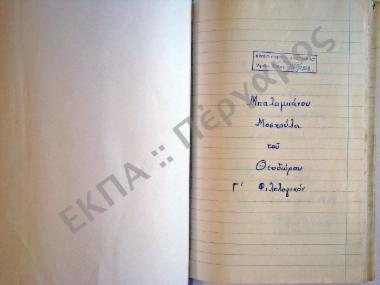 Μπαλαμπάνου
Μοσχούλα
τοῦ
Θεοδώρου
Γ' Φιλολογικόν
ΕΚΠΑ :: Πέργαμος